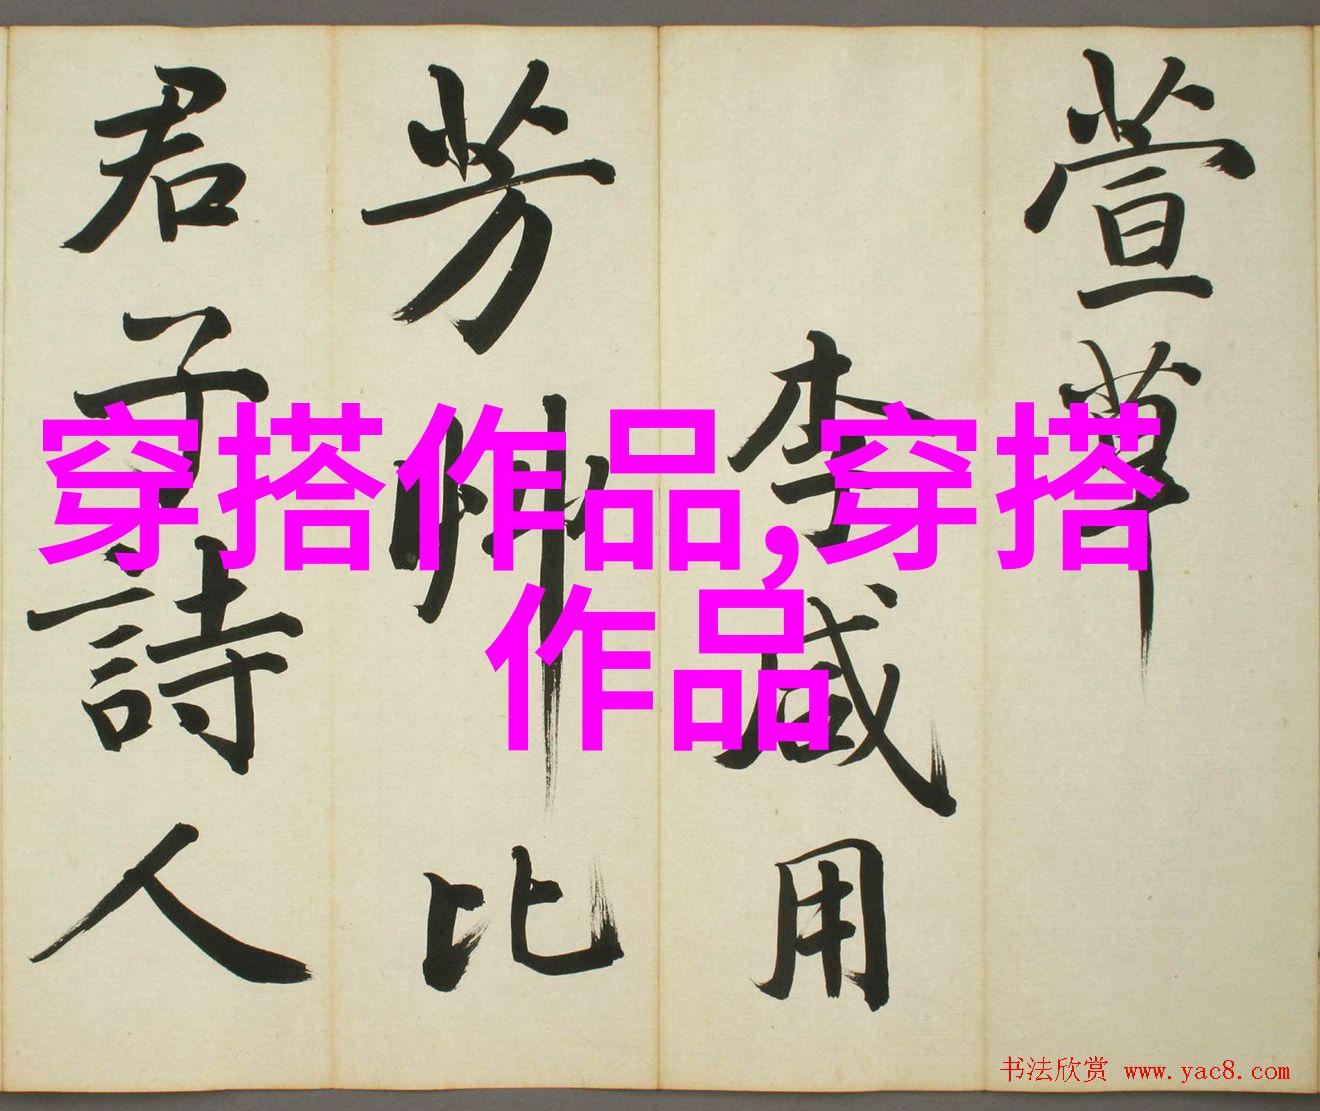 萱草
李咸用
芳草比
君子詩人
穿搭作品,穿搭
作品
书法欣赏 www.yac8.com